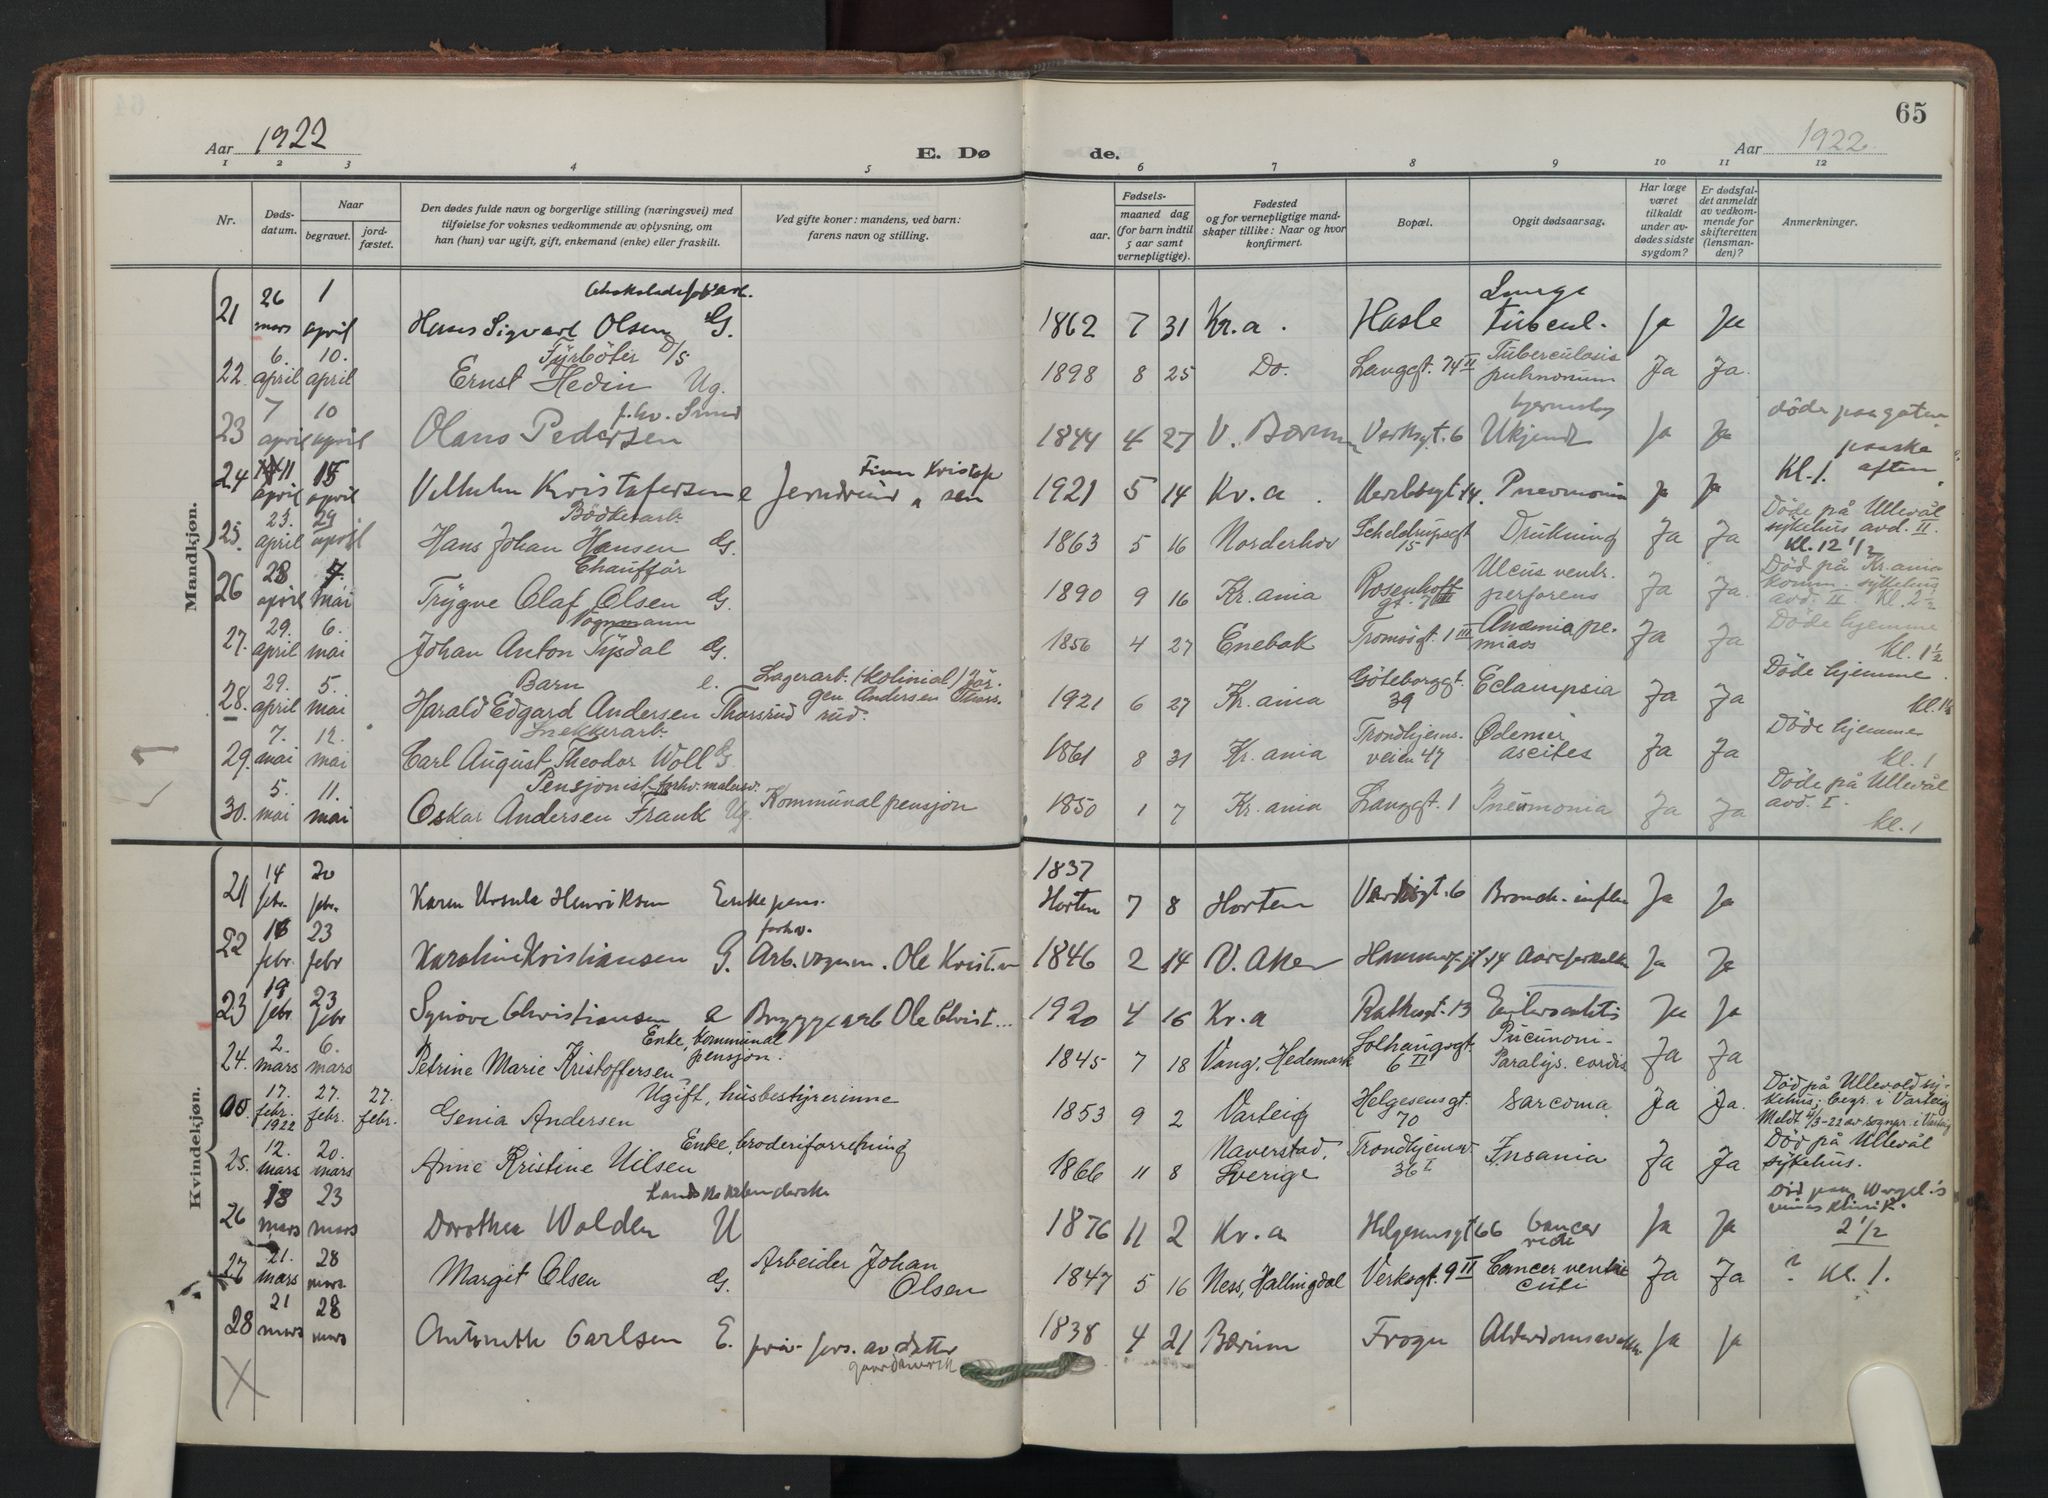 65
Aar 1922
E. Dø
de.
Aar 1922
1 2 3 4 5 6 7 8 9 10 11 12
Nr.
Døds-
datum.
Naar
begravet.
jord-
fæstet.
Den dødes fulde navn og borgerlige stilling (næringsvei) med
tilføielse for voksnes vedkommende av oplysning, om
han (hun) var ugift, gift, enkemand (enke) eller fraskilt.
Ved gifte koner: mandens, ved barn:
farens navn og stilling.
Fødsels-
aar.
maaned dag
(for barn indtil
5 aar samt
vernepligtige).
Fødested
og for vernepligtige mand-
skaper tillike: Naar og hvor
konfirmert.
Bopæl.
Opgit dødsaarsag.
Har læge
været
tilkaldt
under av-
dødes sidste
sygdom?
Er dødsfal-
det anmeldt
av vedkom-
mende for
skifteretten
(lensman-
den)?
Anmerkninger.
Mandkjøn.
21 26 mars 1 april Hans Sigvart Olsen G. 1862 7 31 Kr.a. Hasle Lunge Tubcul. Ja Ja
22. 6. april 10. april Fyrböter D/S Ernst Hedin Ug. 1898 8 25 Do. Langgt. 74 II Tuberculosis pulmonum Ja Ja.
23 7 april 10 april Olaus Pedersen 1844 4 27 V. Bærum Verksgt. 6 Ukjendt Ja Ja döde paa gaten
24 11 april 15 april Vilhelm Kristofersen e Jerndreier Finn Kristofersen 1921 5 14 Kr.a. 14. Pnevmonia Ja Ja Kl. 1. paaske aften
25. 23. april 29 april Bödkerarb. Hans Johan Hansen G. 1863 5 16 Norderhov Scheldrupsgt 15 Drukning Ja Ja Döde på Ullevål sykehus avd. II. Kl. 12 1/2
26 28 april 7. mai Chaufför Trygve Olaf Olsen G. 1890 9 16 Kr.ania Rosenhoffgt. 7 Ulcus ventr. perforens Ja Ja. Död på Kr.ania komm. sykehus avd. II. Kl. 2 1/2
27. 29. april 6. mai Vognmann Johan Anton Tysdal G. 1856 4 27 Enebak Tromsögt. 1 III Anæmia pe- Ja Ja Döde hjemme Kl. 1 1/2
28. 29. april 5. mai Barn e. Harald Edgard Andersen Thorsrud Lagerarb. (Kolonial) Jör- gen Andersen Thors- rud. 1921 6 27 Kr.ania Göteborggt. 39 Eclampsia Ja Ja Döde hjemme. Kl. 1 1/2
29. 7. mai 12. mai Snekkerarb. Carl August Theodor Woll G 1861 8 31 Kr.ania Trondhjems- veien 47 Ødemer ascites Ja Ja Döde hjemme Kl. 1
30. 5. mai 11. mai Pensjonist, forhv. malersv. Oskar Andersen Frank Ug. Kommunal pensjon 1850 1 7 Kr.ania Langgt. 1 Pneumonia Ja Ja Döde på Ullevål avd. I. Kl. 1
Kvindekjøn.
21 14 febr. 20 febr. Karen Ursula Henriksen Enke pens. 1837 Horten 7 8 Horten Verksgt. 6 Bronch. Ja Ja
22 18 febr. 23 febr Karoline Kristiansen G. forhv. Arb. vognm. Ole Krist.n 1846 2 14 V. Aker 14 Aareforkalkn Ja Ja
23 19 febr 23 febr Synöve Christiansen a Bryggearb Ole Christ... 1920 4 16 Kr.a Rathkesgt. 13 Ja Ja
24. 2. mars 6. mars Enke, Kommunal pensjon. Petrine Marie Kristoffersen 1845 7 18 Vang, Hedemark Solhaugsgt. 6 II Pneumoni- Paralys. cordis Ja Ja
17. febr. 1922 27. febr. 27. febr. Ugift, husbestyrerinne Genia Andersen 1853 9 2 Varteig Helgesensgt. 70 Sarcoma Ja Ja. Död på Ullevold sy- kehus; begr. i Varteig Meldt 4/3-22 av sognpr. i Varteig
25. 12. mars 20. mars Enke, broderiforretning Anne Kristine Nilsen 1866 11 8 Naverstad, Sverige Trondhjemsv 36 I Insania Ja Ja Död på Ullevål sykehus.
26 18 mars 23 mars Dorothea Wolden U 1876 11 2 Kr.a Helgesensgt 66 Cancer Ja Ja Död paa klinik. 2 1/2
27 21. mars 28 mars Margit Olsen G. Arbeider Johan Olsen 1847 5 16 Ness, Hallingdal Verksgt. 9 II Cancer ventri culi Ja Ja ? Kl. 1.
28 21 mars 28 mars Antonette Carlsen E. priv. fors. av datter 1838 4 21 Bærum Frogn Alderdomssvakh. Ja Ja
X